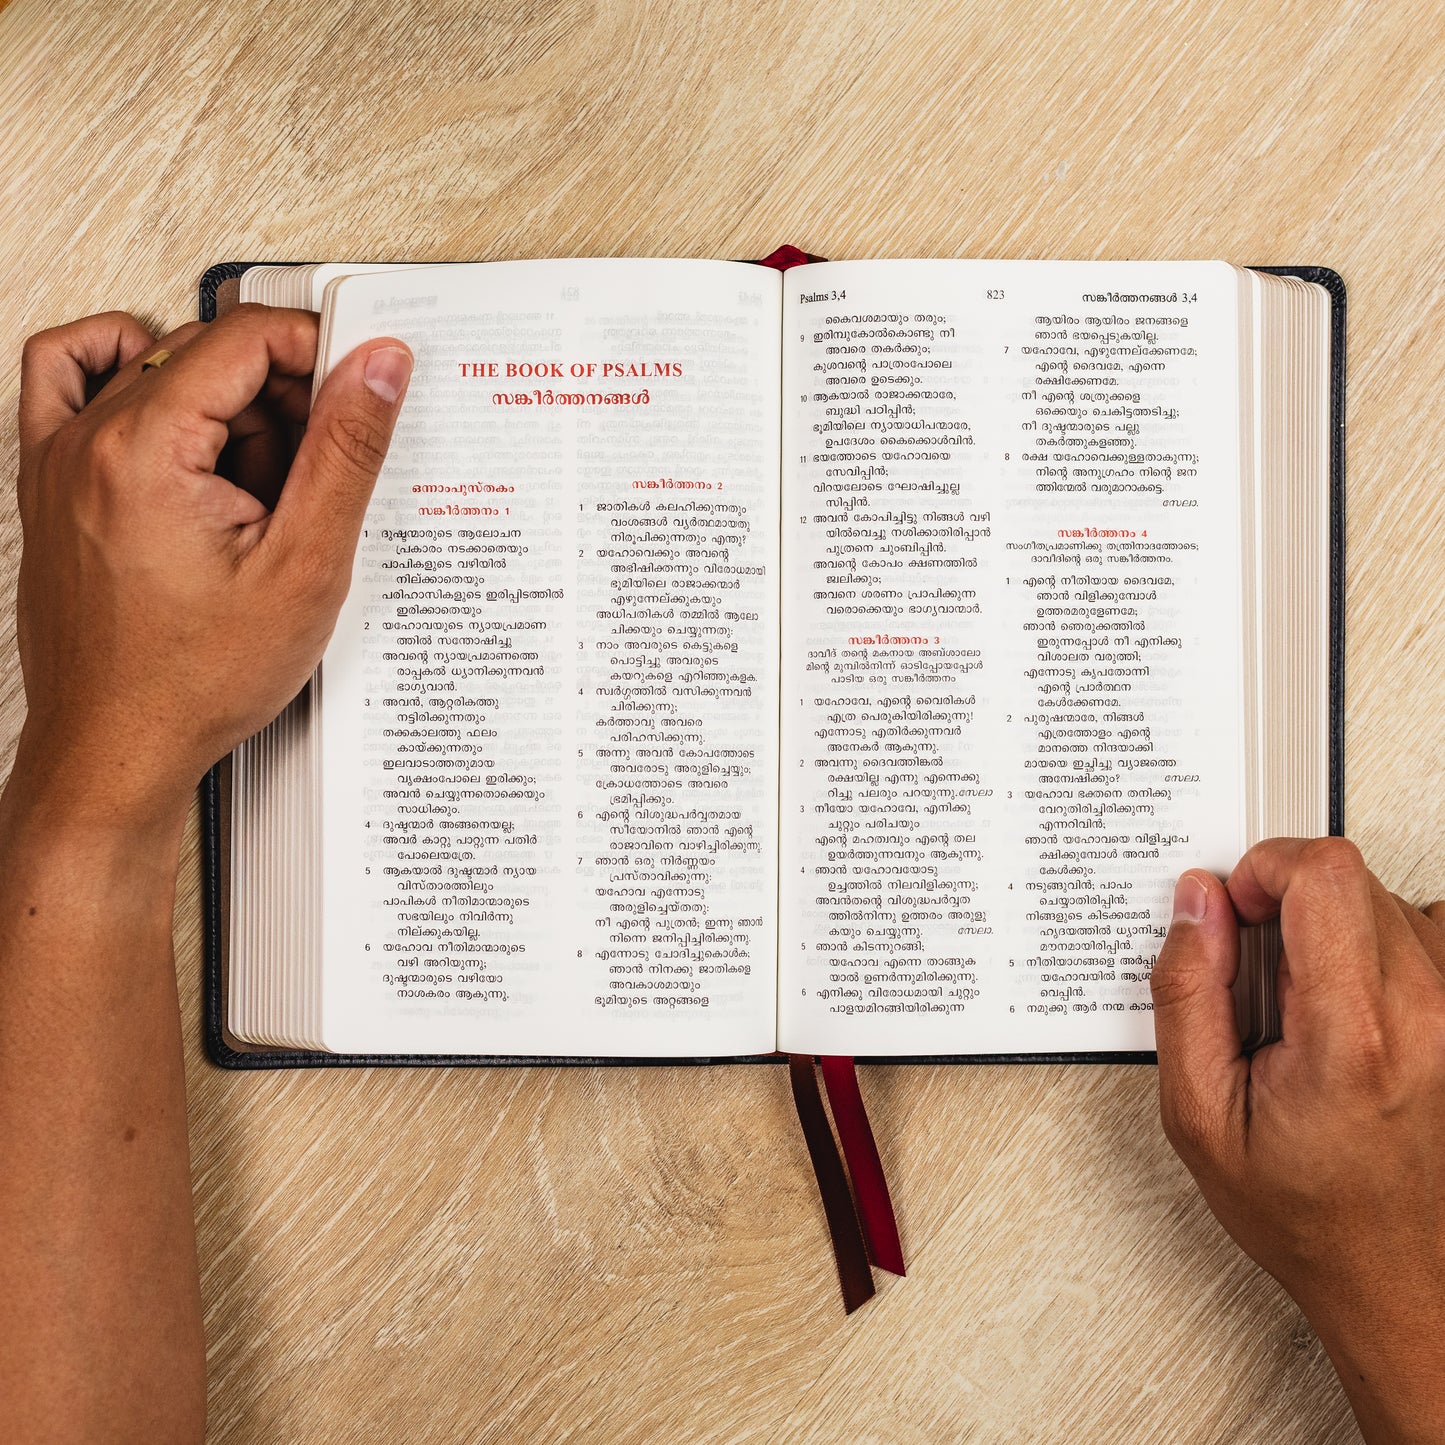 THE BOOK OF PSALMS
സങ്കീർത്തനങ്ങൾ
ഒന്നാംപുസ്തകം
സങ്കീർത്തനം 1
1 ദുഷ്ടന്മാരുടെ ആലോചന
പ്രകാരം നടക്കാതെയും
പാപികളുടെ വഴിയിൽ
നില്ക്കാതെയും
പരിഹാസികളുടെ ഇരിപ്പിടത്തിൽ
ഇരിക്കാതെയും
2 യഹോവയുടെ ന്യായപ്രമാണ
ത്തിൽ സന്തോഷിച്ചു
അവന്റെ ന്യായപ്രമാണത്തെ
രാപ്പകൽ ധ്യാനിക്കുന്നവൻ
ഭാഗ്യവാൻ.
3 അവൻ, ആറ്റരികത്തു
നട്ടിരിക്കുന്നതും
തക്കകാലത്തു ഫലം
കായ്ക്കുന്നതും
ഇലവാടാത്തതുമായ
വൃക്ഷംപോലെ ഇരിക്കും;
അവൻ ചെയ്യുന്നതൊക്കെയും
സാധിക്കും.
4 ദുഷ്ടന്മാർ അങ്ങനെയല്ല;
അവർ കാറ്റു പാറ്റുന്ന പതിർ
പോലെയത്രേ.
5 ആകയാൽ ദുഷ്ടന്മാർ ന്യായ
വിസ്താരത്തിലും
പാപികൾ നീതിമാന്മാരുടെ
സഭയിലും നിവിർന്നു
നില്ക്കുകയില്ല.
6 യഹോവ നീതിമാന്മാരുടെ
വഴി അറിയുന്നു;
ദുഷ്ടന്മാരുടെ വഴിയോ
നാശകരം ആകുന്നു.
സങ്കീർത്തനം 2
1 ജാതികൾ കലഹിക്കുന്നതും
വംശങ്ങൾ വ്യർത്ഥമായതു
നിരൂപിക്കുന്നതും എന്തു?
2 യഹോവെക്കും അവന്റെ
അഭിഷിക്തന്നും വിരോധമായി
ഭൂമിയിലെ രാജാക്കന്മാർ
എഴുന്നേല്ക്കുകയും
അധിപതികൾ തമ്മിൽ ആലോ
ചിക്കയും ചെയ്യുന്നതു:
3 നാം അവരുടെ കെട്ടുകളെ
പൊട്ടിച്ചു അവരുടെ
കയറുകളെ എറിഞ്ഞുകളക.
4 സ്വർഗ്ഗത്തിൽ വസിക്കുന്നവൻ
ചിരിക്കുന്നു;
കർത്താവു അവരെ
പരിഹസിക്കുന്നു.
5 അന്നു അവൻ കോപത്തോടെ
അവരോടു അരുളിച്ചെയ്യും;
ക്രോധത്തോടെ അവരെ
ഭ്രമിപ്പിക്കും.
6 എന്റെ വിശുദ്ധപർവ്വതമായ
സീയോനിൽ ഞാൻ എന്റെ
രാജാവിനെ വാഴിച്ചിരിക്കുന്നു.
7 ഞാൻ ഒരു നിർണ്ണയം
പ്രസ്താവിക്കുന്നു:
യഹോവ എന്നോടു
അരുളിച്ചെയ്തതു:
നീ എന്റെ പുത്രൻ; ഇന്നു ഞാൻ
നിന്നെ ജനിപ്പിച്ചിരിക്കുന്നു.
8 എന്നോടു ചോദിച്ചുകൊൾക;
ഞാൻ നിനക്കു ജാതികളെ
അവകാശമായും
ഭൂമിയുടെ അറ്റങ്ങളെ
Psalms 3,4 823 സങ്കീർത്തനങ്ങൾ 3,4
കൈവശമായും തരും;
9 ഇരിമ്പുകോൽകൊണ്ടു നീ
അവരെ തകർക്കും;
കുശവന്റെ പാത്രംപോലെ
അവരെ ഉടെക്കും.
10 ആകയാൽ രാജാക്കന്മാരേ,
ബുദ്ധി പഠിപ്പിൻ;
ഭൂമിയിലെ ന്യായാധിപന്മാരേ,
ഉപദേശം കൈക്കൊൾവിൻ.
11 ഭയത്തോടെ യഹോവയെ
സേവിപ്പിൻ;
വിറയലോടെ ഘോഷിച്ചുല്ല
സിപ്പിൻ.
12 അവൻ കോപിച്ചിട്ടു നിങ്ങൾ വഴി
യിൽവെച്ചു നശിക്കാതിരിപ്പാൻ
പുത്രനെ ചുംബിപ്പിൻ.
അവന്റെ കോപം ക്ഷണത്തിൽ
ജ്വലിക്കും;
അവനെ ശരണം പ്രാപിക്കുന്ന
വരൊക്കെയും ഭാഗ്യവാന്മാർ.
സങ്കീർത്തനം 3
ദാവീദ് തന്റെ മകനായ അബ്ശാലോ
മിന്റെ മുമ്പിൽനിന്ന് ഓടിപ്പോയപ്പോൾ
പാടിയ ഒരു സങ്കീർത്തനം
1 യഹോവേ, എന്റെ വൈരികൾ
എത്ര പെരുകിയിരിക്കുന്നു!
എന്നോടു എതിർക്കുന്നവർ
അനേകർ ആകുന്നു.
2 അവന്നു ദൈവത്തിങ്കൽ
രക്ഷയില്ല എന്നു എന്നെക്കു
റിച്ചു പലരും പറയുന്നു. സേലാ
3 നീയോ യഹോവേ, എനിക്കു
ചുറ്റും പരിചയും
എന്റെ മഹത്വവും എന്റെ തല
ഉയർത്തുന്നവനും ആകുന്നു.
4 ഞാൻ യഹോവയോടു
ഉച്ചത്തിൽ നിലവിളിക്കുന്നു;
അവൻതന്റെ വിശുദ്ധപർവ്വത
ത്തിൽനിന്നു ഉത്തരം അരുളു
കയും ചെയ്യുന്നു. സേലാ.
5 ഞാൻ കിടന്നുറങ്ങി;
യഹോവ എന്നെ താങ്ങുക
യാൽ ഉണർന്നുമിരിക്കുന്നു.
6 എനിക്കു വിരോധമായി ചുറ്റും
പാളയമിറങ്ങിയിരിക്കുന്ന
ആയിരം ആയിരം ജനങ്ങളെ
ഞാൻ ഭയപ്പെടുകയില്ല.
7 യഹോവേ, എഴുന്നേല്ക്കേണമേ;
എന്റെ ദൈവമേ, എന്നെ
രക്ഷിക്കേണമേ.
നീ എന്റെ ശത്രുക്കളെ
ഒക്കെയും ചെകിട്ടത്തടിച്ചു;
നീ ദുഷ്ടന്മാരുടെ പല്ലു
തകർത്തുകളഞ്ഞു.
8 രക്ഷ യഹോവെക്കുള്ളതാകുന്നു;
നിന്റെ അനുഗ്രഹം നിന്റെ ജന
ത്തിന്മേൽ വരുമാറാകട്ടെ.
സേലാ.
സങ്കീർത്തനം 4
സംഗീതപ്രമാണിക്കു തന്ത്രിനാദത്തോടെ;
ദാവീദിന്റെ ഒരു സങ്കീർത്തനം.
1 എന്റെ നീതിയായ ദൈവമേ,
ഞാൻ വിളിക്കുമ്പോൾ
ഉത്തരമരുളേണമേ;
ഞാൻ ഞെരുക്കത്തിൽ
ഇരുന്നപ്പോൾ നീ എനിക്കു
വിശാലത വരുത്തി;
എന്നോടു കൃപതോന്നി
എന്റെ പ്രാർത്ഥന
കേൾക്കേണമേ.
2 പുരുഷന്മാരേ, നിങ്ങൾ
എത്രത്തോളം എന്റെ
മാനത്തെ നിന്ദയാക്കി
മായയെ ഇച്ഛിച്ചു വ്യാജത്തെ
അന്വേഷിക്കും? സേലാ.
3 യഹോവ ഭക്തനെ തനിക്കു
വേറുതിരിച്ചിരിക്കുന്നു
എന്നറിവിൻ;
ഞാൻ യഹോവയെ വിളിച്ചപേ
ക്ഷിക്കുമ്പോൾ അവൻ
കേൾക്കും.
4 നടുങ്ങുവിൻ; പാപം
ചെയ്യാതിരിപ്പിൻ;
നിങ്ങളുടെ കിടക്കമേൽ
ഹൃദയത്തിൽ ധ്യാനിച്ചു
മൗനമായിരിപ്പിൻ.
5 നീതിയാഗങ്ങളെ അർപ്പി
യഹോവയിൽ ആശ്ര
വെപ്പിൻ.
6 നമുക്കു ആർ നന്മ കാണ